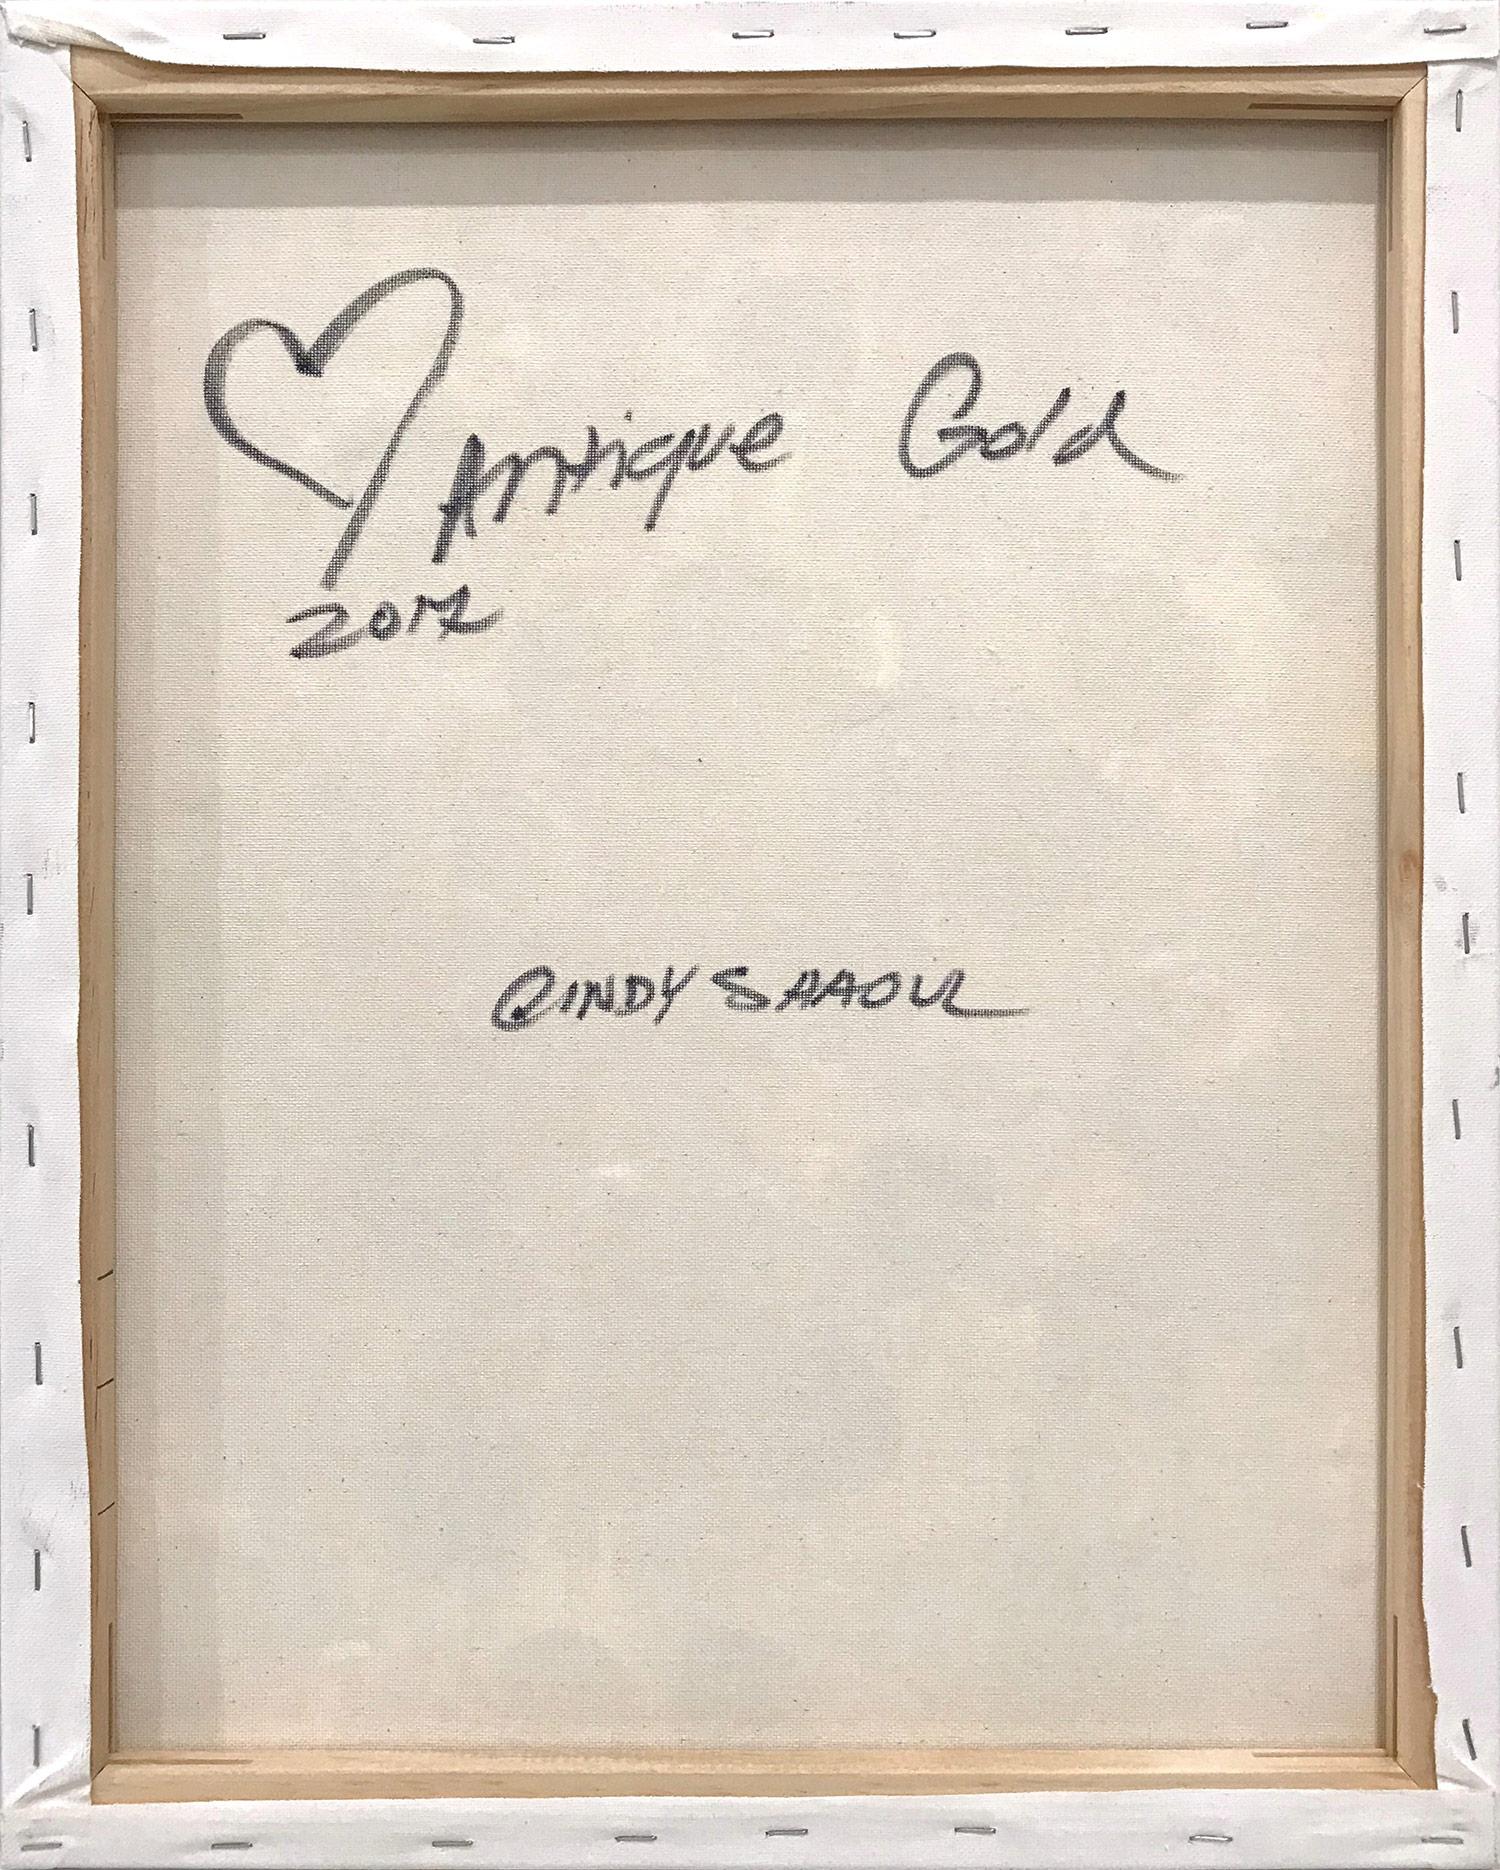 ♡ Antique Gold
2017
CINDY SHAOUL